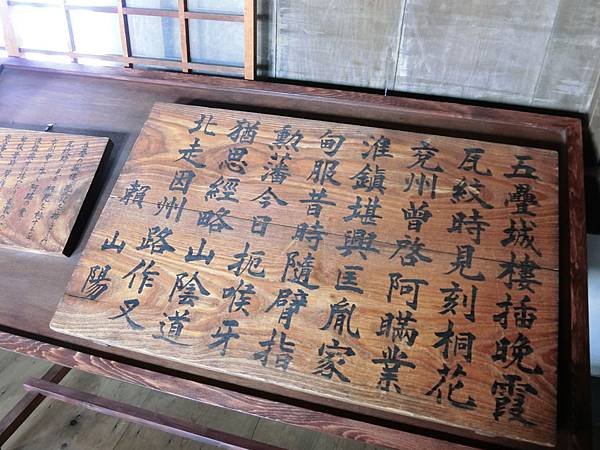 五疊城樓插晩霞
瓦紋時見刻桐花
兗州曾啓阿瞞業
淮鎮堪興匡胤家
甸服昔時隨臂指
勲藩今日扼喉牙
猶思經略山陰道
北走因州路作叉
賴山陽